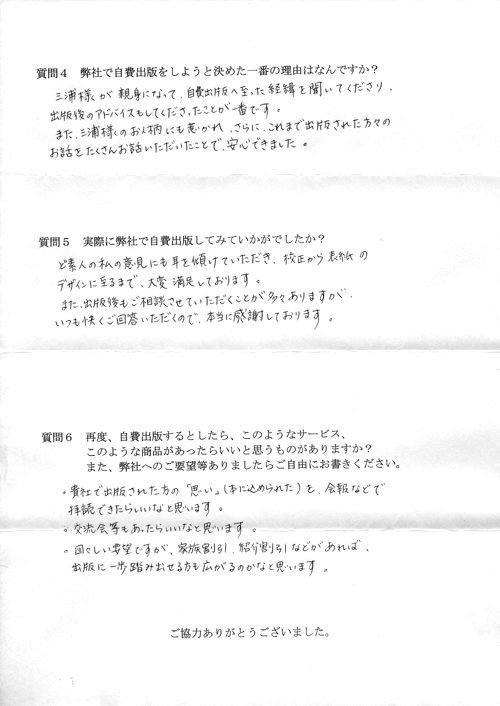 質問４　弊社で自費出版をしようと決めた一番の理由はなんですか？
三浦様が親身になって、自費出版へ至った経緯を聞いてくださり、
出版後のアドバイスもしてくださったことが一番です。
また、三浦様のお人柄にも惹かれ、さらに、これまで出版された方々の
お話をたくさんお話いただいたことで、安心できました。
質問５　実際に弊社で自費出版してみていかがでしたか？
ど素人の私の意見にも耳を傾けていただき、校正から表紙の
デザインに至るまで、大変満足しております。
また、出版後もご相談させていただくことが多々ありますが、
いつも快くご回答いただくので、本当に感謝しております。
質問６　再度、自費出版するとしたら、このようなサービス、
このような商品があったらいいと思うものがありますか？
また、弊社へのご要望等ありましたらご自由にお書きください。
。貴社で出版された方の「思い」（本に込められた）を、会報などで
拝読できたらいいなと思います。
。交流会等もあったらいいなと思います。
。図々しい要望ですが、家族割引、紹介割引などがあれば、
出版に一歩踏み出せる方も広がるのかなと思います。
ご協力ありがとうございました。